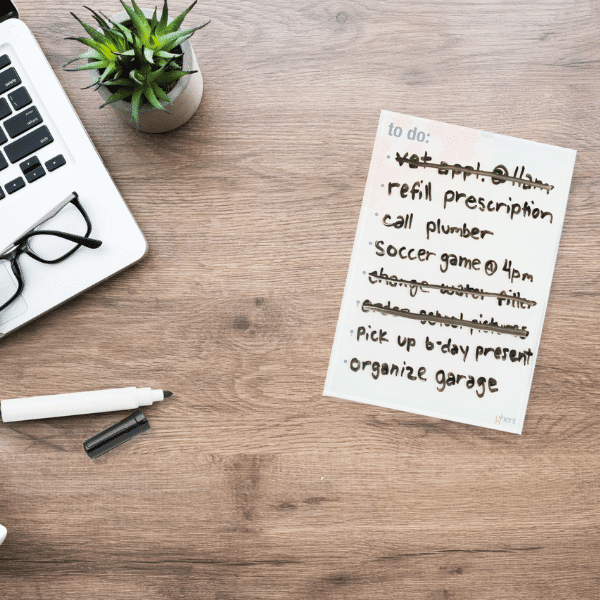 to do:
vet appt. @ 11am
refill prescription
call plumber
soccer game @ 4pm
change water filter
order school pictures
pick up b-day present
organize garage
ghent